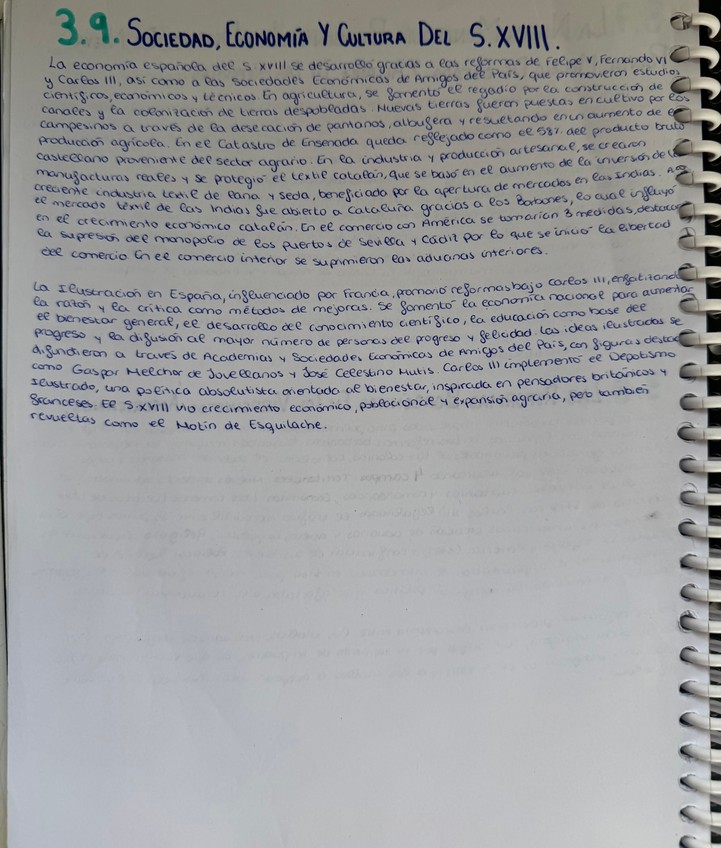 3.9. SOCIEDAD, ECONOMÍA Y CULTURA DEL S.XVIII.
La economía española del S.XVIII se desarrolló gracias a las reformas de Felipe V, Fernando VI
y Carlos III, así como a las Sociedades Económicas de Amigos del País, que promovieron estudios
científicos, económicos y técnicos. En agricultura, se fomentó el regadío por la construcción de
canales y la colonización de tierras despobladas. Nuevas tierras fueron puestas en cultivo por los
campesinos a través de la desecación de pantanos, albufera y resueltando en un aumento de
producción agrícola. En el Catastro de Ensenada queda reflejado como el 58% del producto bruto
castellano proveniente del sector agrario. En la industria y producción artesanal, se crearon
manufacturas reales y se protegió el textil catalán, que se basó en el aumento de la inversión de
creciente industria textil de lana y seda, beneficiada por la apertura de mercados en las Indias.
el mercado textil de las Indias fue abierto a Cataluña gracias a los Borbones, lo cual influyó
en el crecimiento económico catalán. En el comercio con América se tomarían 3 medidas,
la supresión del monopolio de los puertos de Sevilla y Cádiz por lo que se inició la libertad
del comercio. En el comercio interior se suprimieron las aduanas interiores.
La Ilustración en España, influenciado por Francia, promovió reformas bajo Carlos III,
la razón y la crítica como métodos de mejoras. Se fomentó la economía nacional para aumentar
el benestar general, el desarrollo del conocimiento científico, la educación como base del
progreso y la difusión al mayor número de personas del progreso y felicidad. Las ideas ilustradas se
difundieron a través de Academias y Sociedades Económicas de Amigos del País, con figuras
como Gaspar Melchor de Jovellanos y José Celestino Mutis. Carlos III implementó el Depotismo
Ilustrado, una política absolutista orientada al bienestar, inspirada en pensadores británicos y
franceses. El S.XVIII vio crecimiento económico, poblacional y expansión agraria, pero también
revueltas como el Motín de Esquilache.